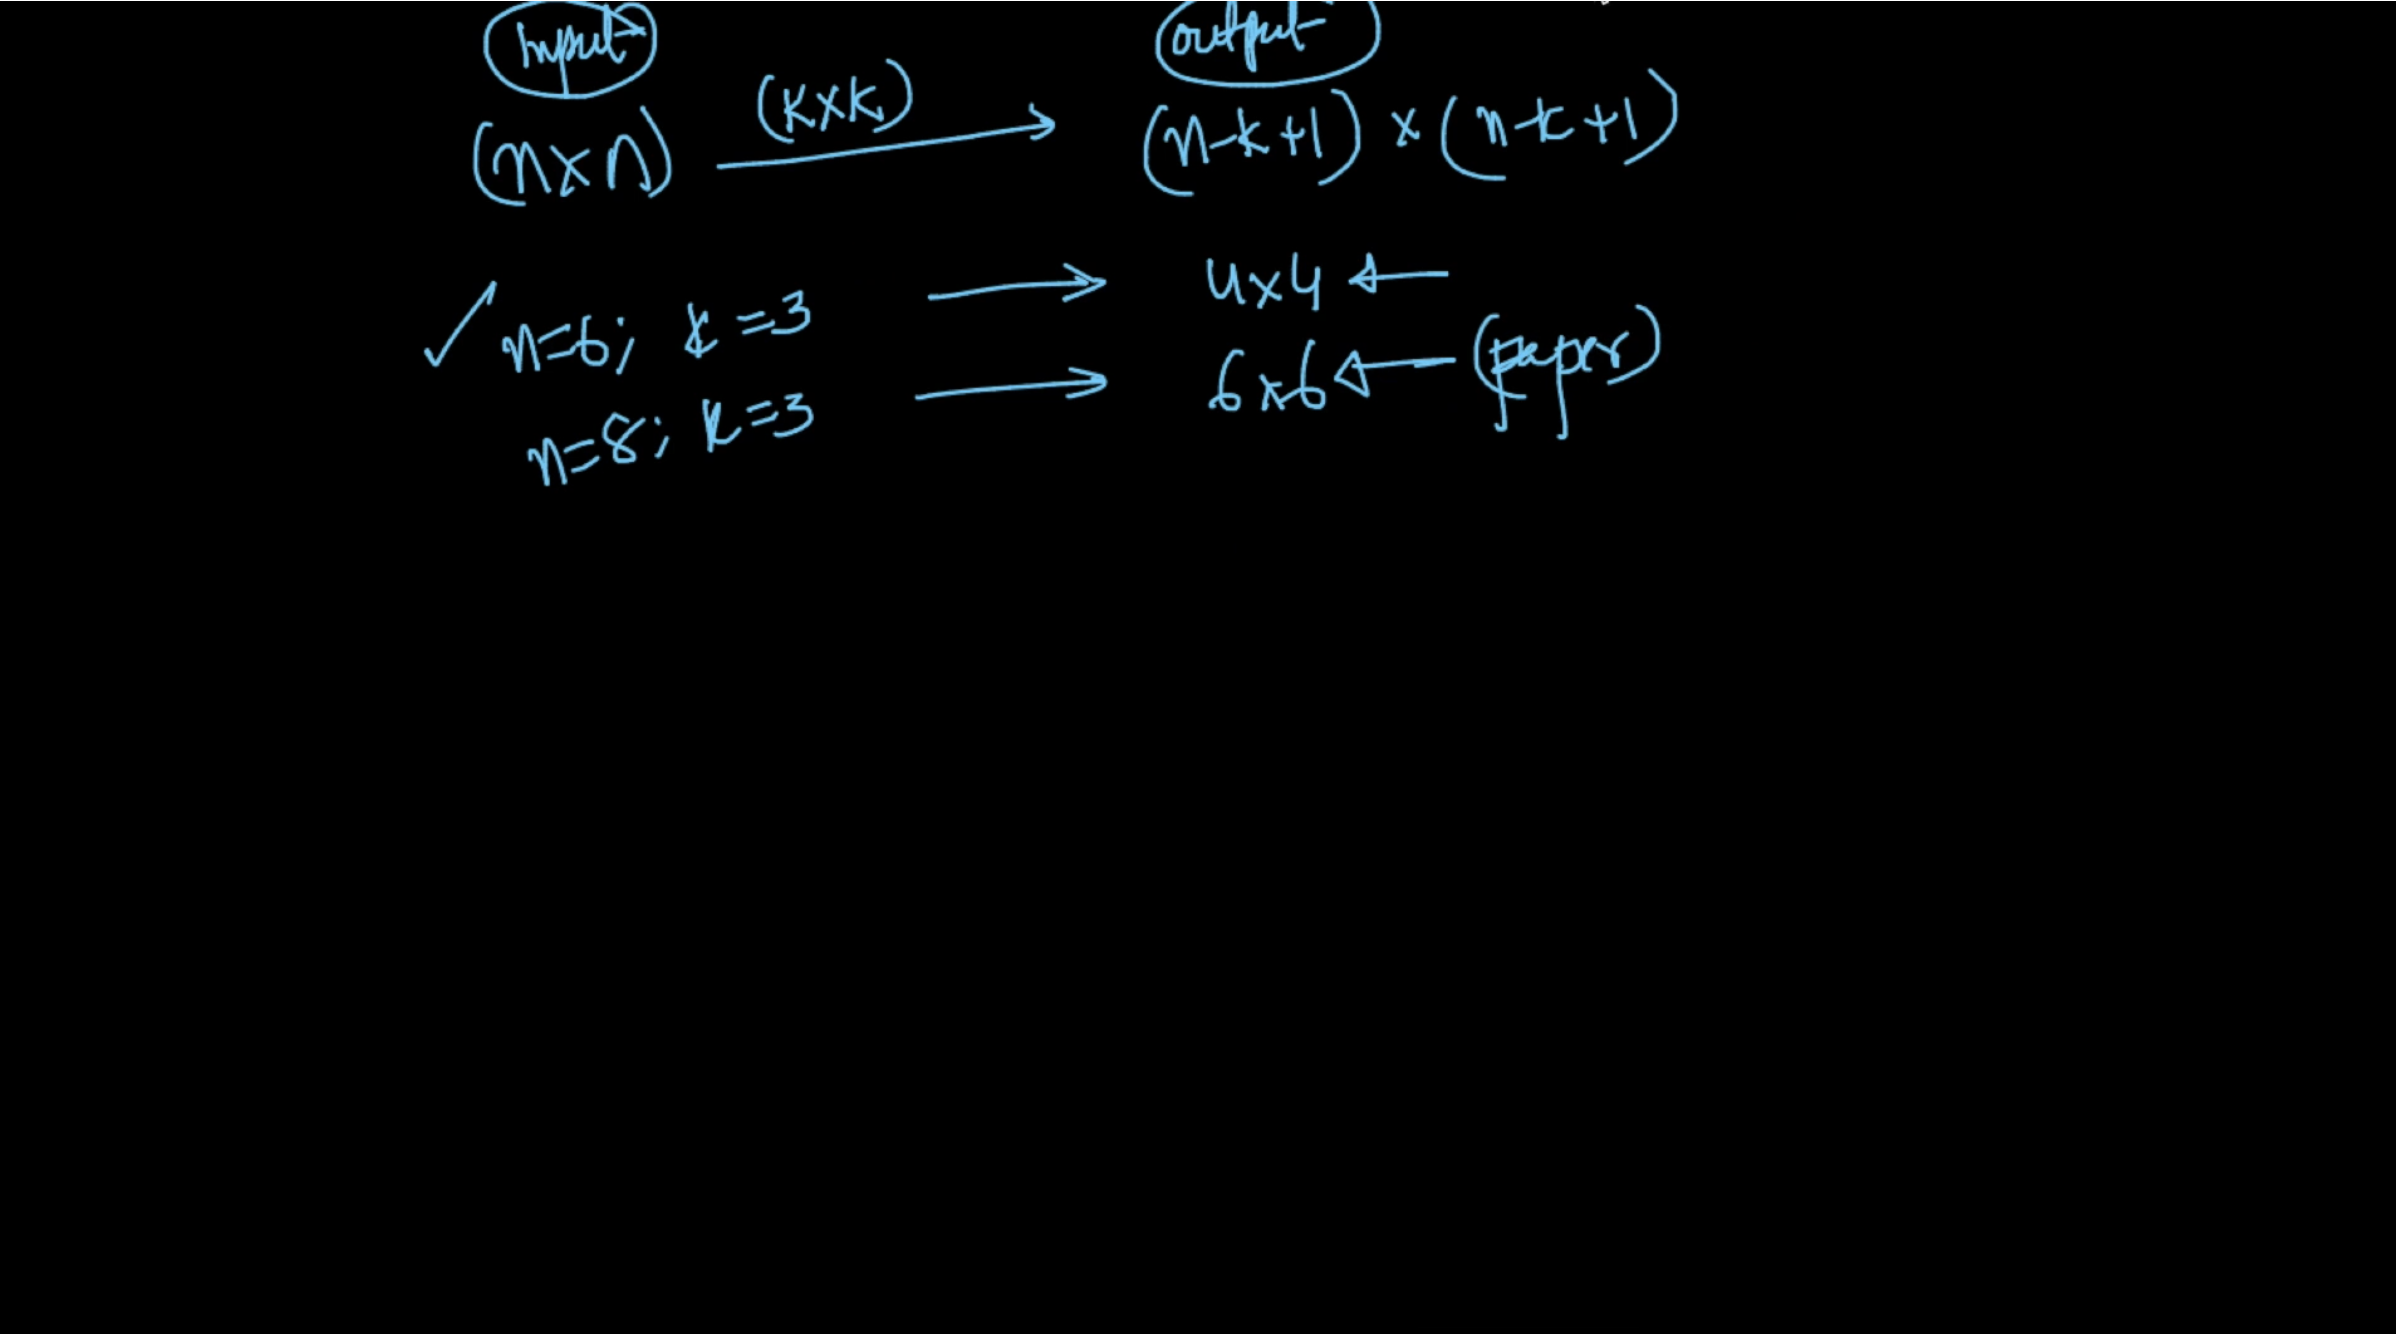 Input output
(n×n) (k×k) (n-k+1) × (n-k+1)
n=6; k=3 4×4
n=8; k=3 6×6 (paper)